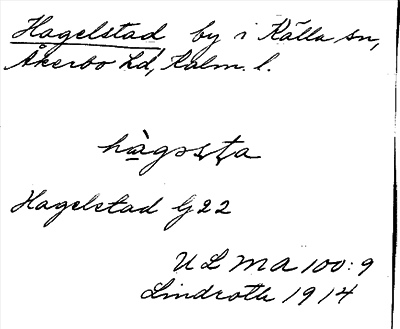 Hagelstad by i Källa sn,
Åkerbo hd, Kalm. l.
hàgssta
Hagelstad G22
ULMA 100:9
Lindroth 1914